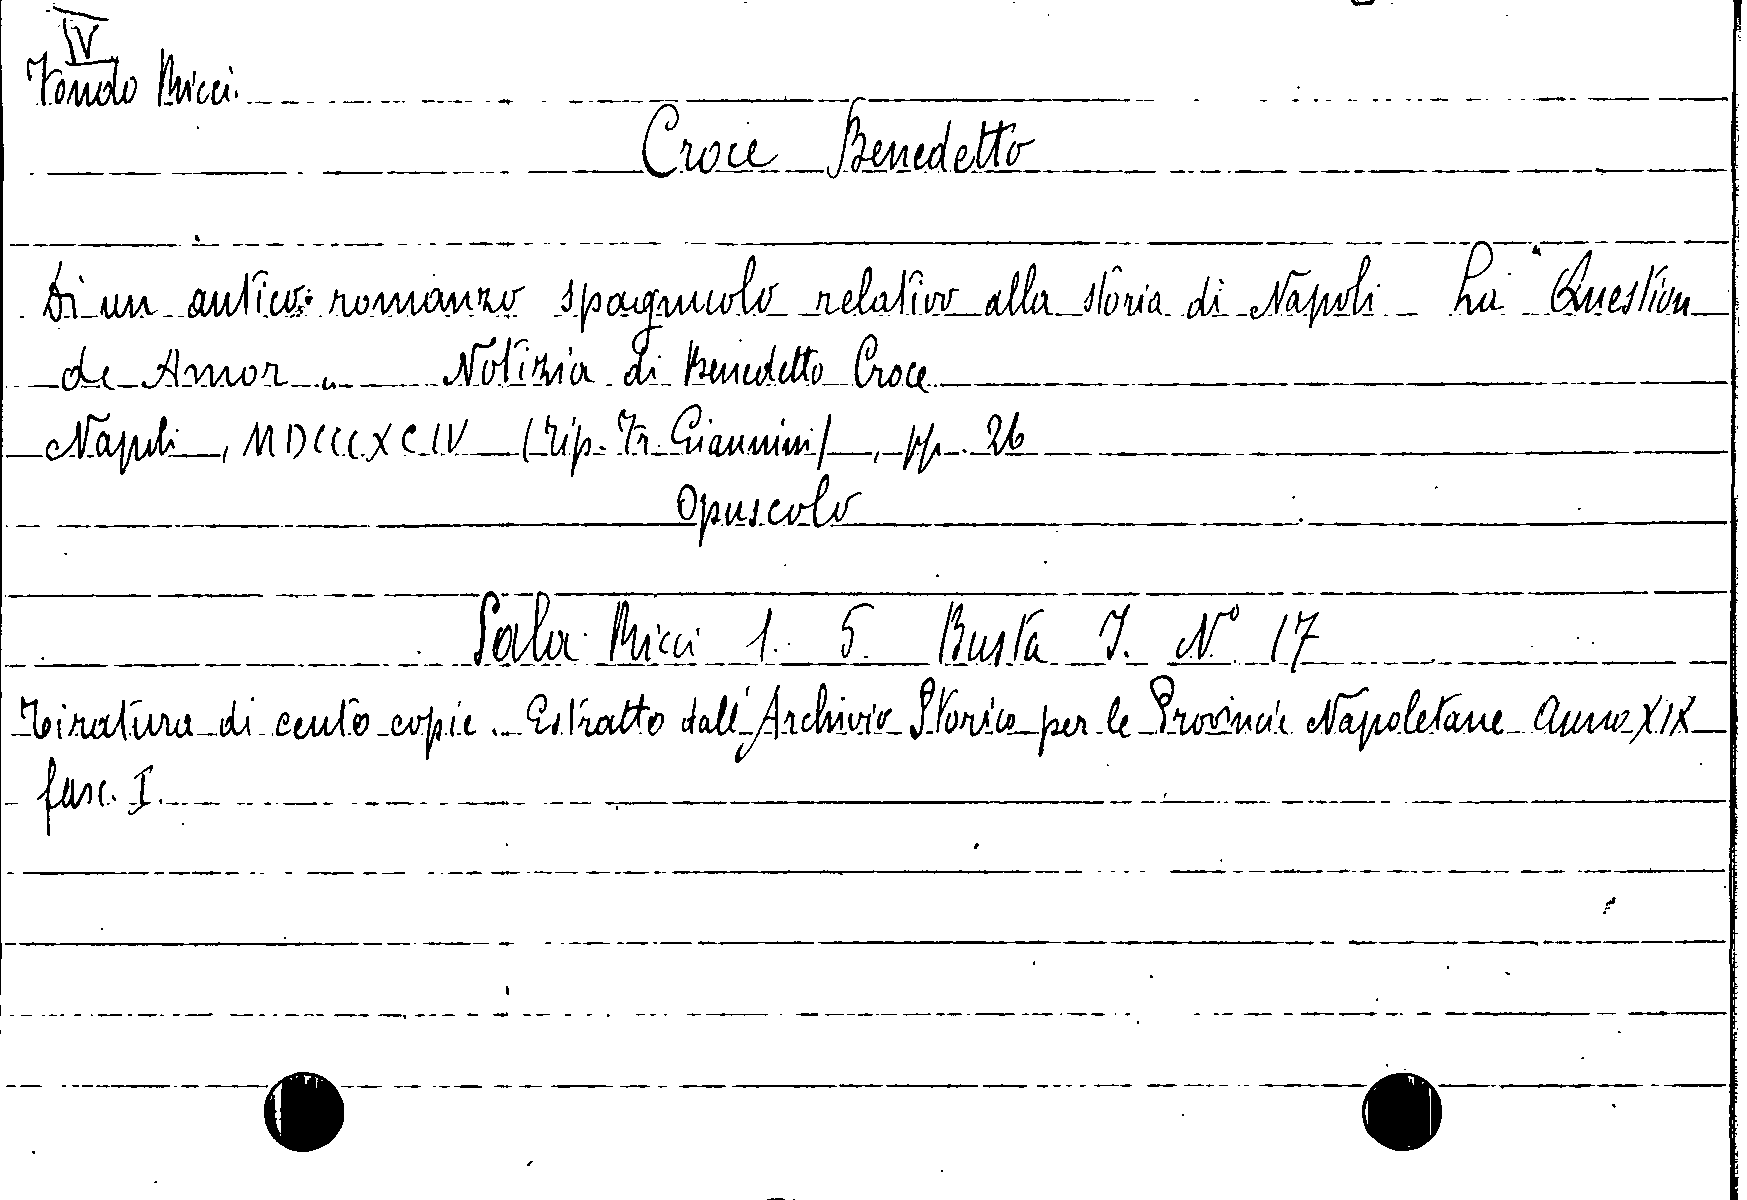 IV
Fondo Ricci.
Croce Benedetto
Di un antico romanzo spagnuolo relativo alla storia di Napoli La "Question
de Amor" Notizia di Benedetto Croce
Napoli, MDCCCXCIV (Tip. Fr. Giannini), pp. 26
Opuscolo
Sala Ricci 1. 5. Busta I. N° 17
Tiratura di cento copie. Estratto dall'Archivio Storico per le Provincie Napoletane Anno XIX
fasc. I.